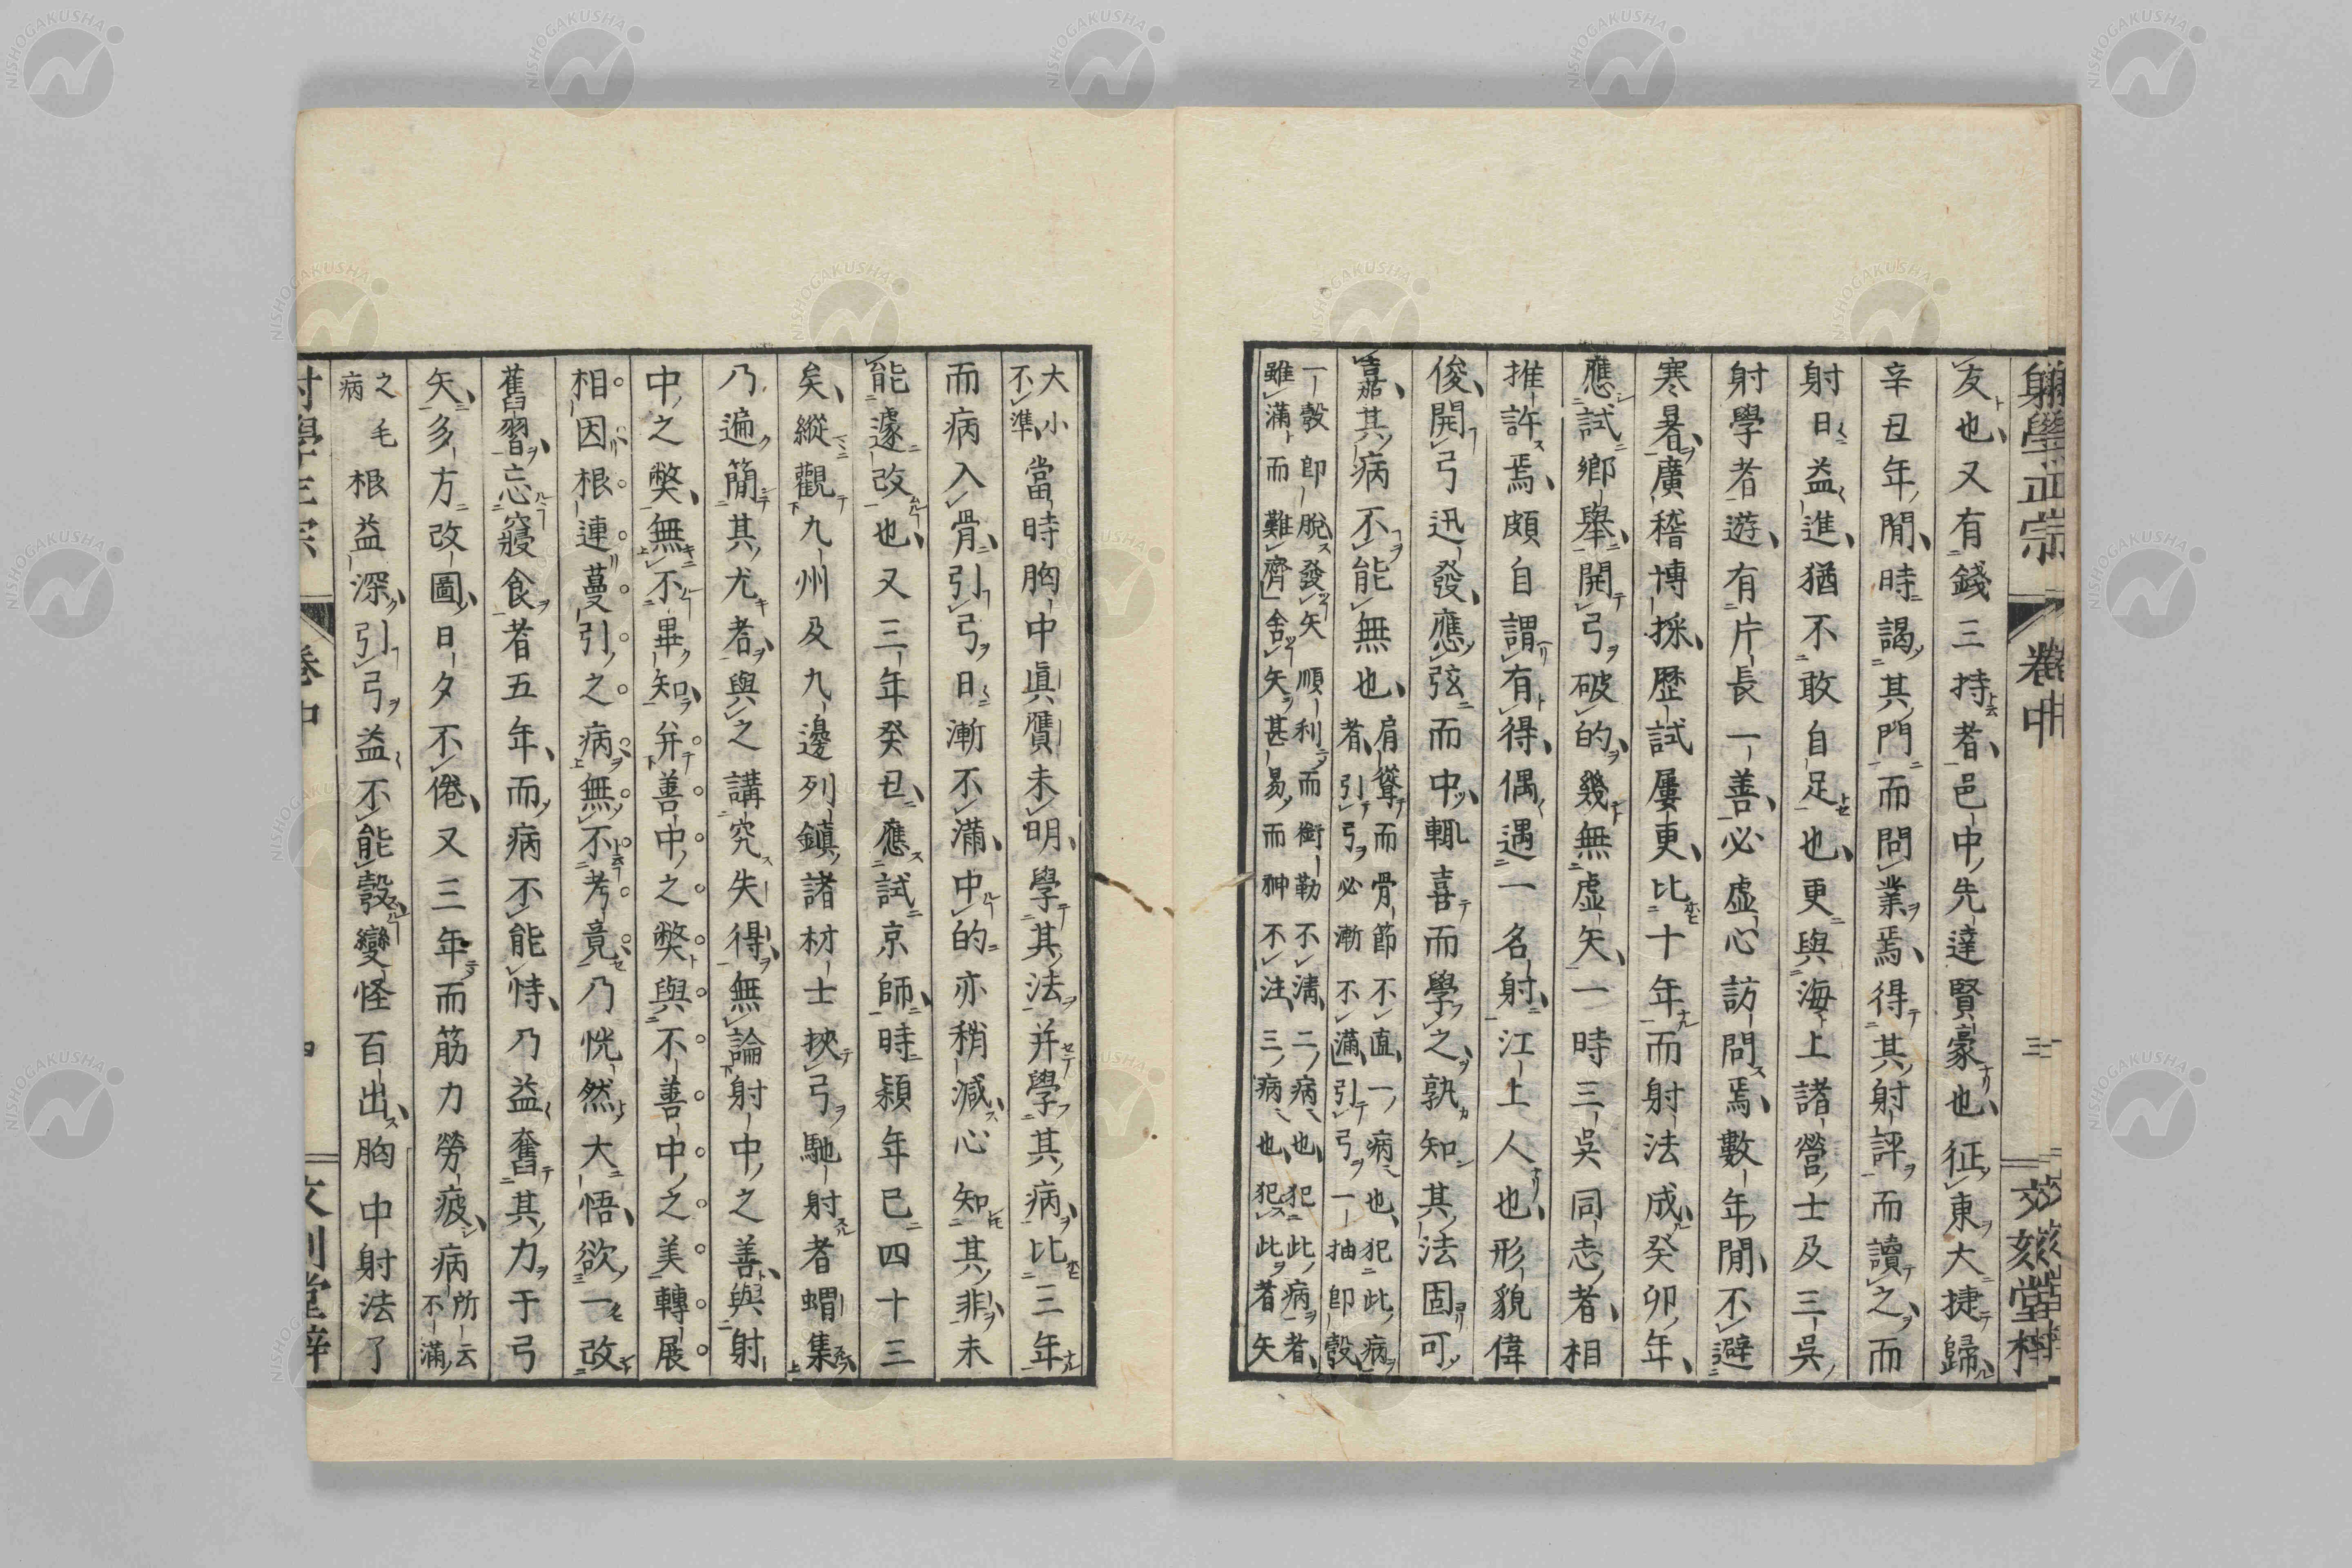 射學正宗 卷中 三
友也又有錢三持者邑中先達賢豪也征東大捷歸
辛丑年閒時謁其門而問業焉得其射評而讀之而
射日益進猶不敢自足也更與海上諸營士及三吳
射學者遊有片長一善必虛心訪問焉數年閒不避
寒暑廣稽博採歷試屢更比十年而射法成癸卯年
應試鄉舉開弓破的幾無虛矢一時三吳同志者相
推許焉頗自謂有得偶遇一名射江上人也形貌偉
俊開弓迅發應弦而中輒喜而學之孰知其法固可
嘉其病不能無也
肩聳而骨節不直一病也犯此病
者引弓必漸不滿引弓一抽卽彀
一彀卽脫發矢順利而銜勒不淸二病也犯此病者
雖滿而難齊舍矢甚易而神不注三病也犯此者矢
大小
不準
當時胸中眞贗未明學其法并學其病比三年
而病入骨引弓日漸不滿中的亦稍減心知其非未
能遽改也又三年癸丑應試京師時潁年已四十三
矣縱觀九州及九邊列鎮諸材士挾弓馳射者蝟集
乃遍簡其尤者與之講究失得無論射中之善與射
中之獘無不畢知并善中之獘與不善中之美轉展
相因根連蔓引之病無不考竟乃恍然大悟欲一改
舊習忘寢食者五年而病不能恃乃益奮其力于弓
矢多方改圖日夕不倦又三年而筋力勞疲病
所云
不滿
之毛
病
根益深引弓益不能彀變怪百出胸中射法了
卷中
NISHOGAKUSHA